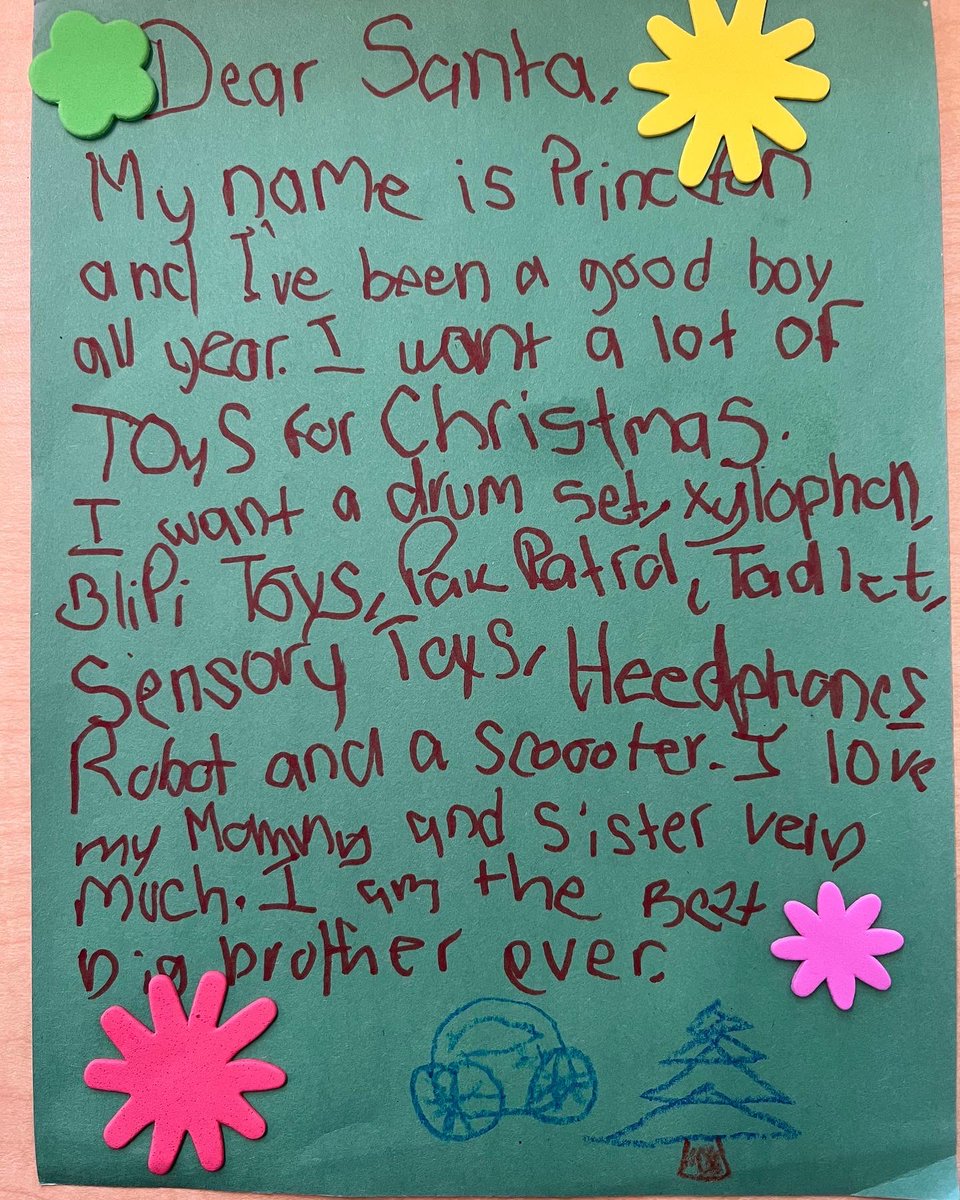 Dear Santa,
My name is Princeton
and I've been a good boy
all year. I want a lot of
TOyS for Christmas.
I want a drum set, xylophon,
BliPi Toys, Paw Patrol, Tadlet,
Sensory Toys, Heedphones
Robot and a Scoooter. I love
my Mommy and sister very
much. I am the Best
big brother ever.